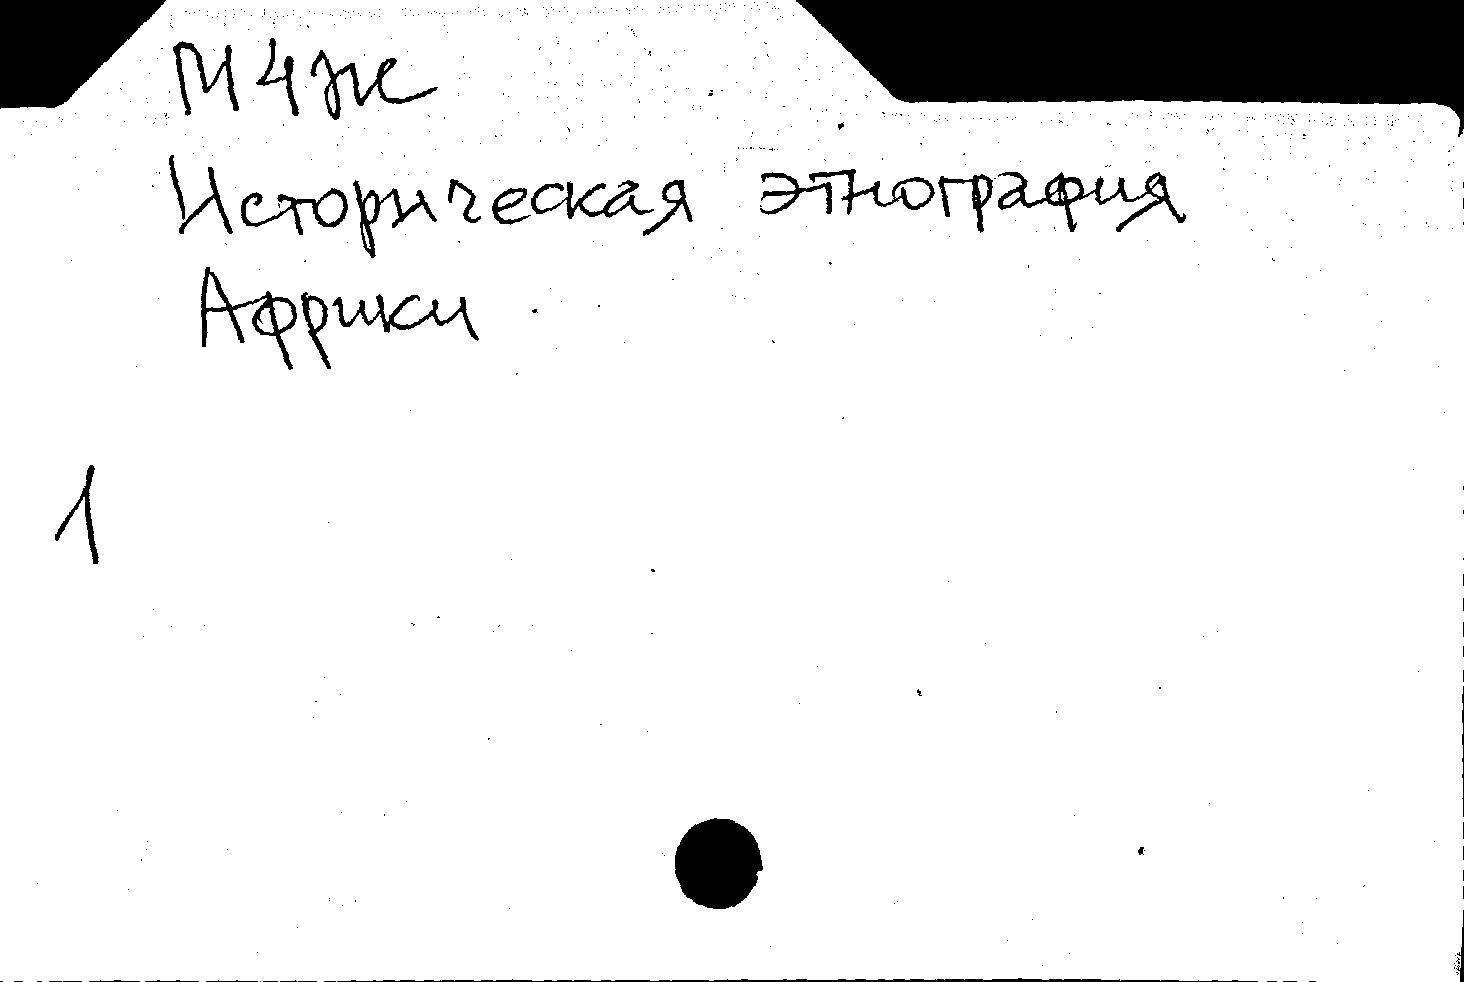 М4Ж
Историческая этнография
Африки
1